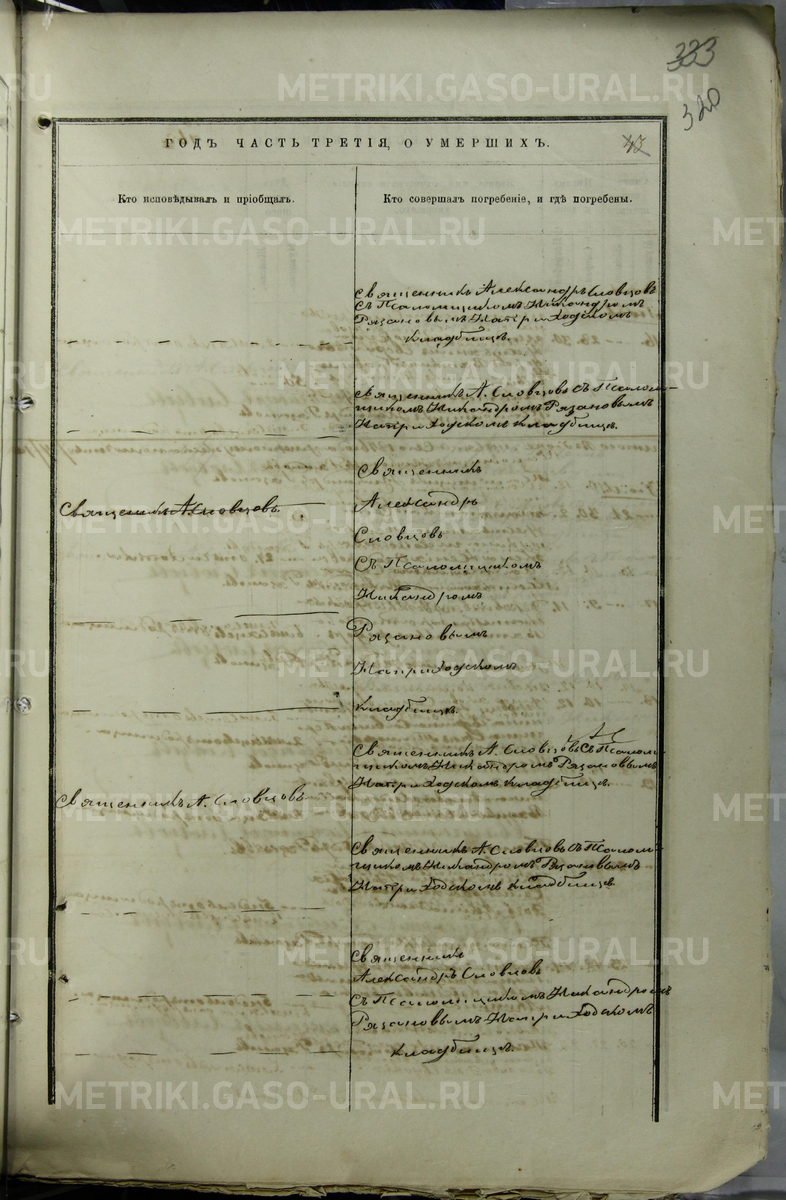 333
320
ГОДЪ ЧАСТЬ ТРЕТІЯ, О УМЕРШИХЪ.
42
Кто исповѣдывалъ и пріобщалъ.
Кто совершалъ погребеніе, и гдѣ погребены.
Священникъ Александръ Словцовъ
съ Псаломщикомъ Никандромъ
Рязановымъ На приходскомъ
кладбищѣ.
Священникъ А. Словцовъ съ Псалом-
щикомъ Никандромъ Рязановымъ
На приходскомъ кладбищѣ.
Священникъ
Священникъ А. Словцовъ.
Александръ
Словцовъ
съ Псаломщикомъ
Никандромъ
Рязановымъ
На приходскомъ
кладбищѣ.
Священникъ А. Словцовъ съ Псалом-
щикомъ Никандромъ Рязановымъ
На приходскомъ кладбищѣ.
Священникъ А. Словцовъ
Священникъ А. Словцовъ съ Псалом-
щикомъ Никандромъ Рязановымъ
На приходскомъ кладбищѣ.
Священникъ
Александръ Словцовъ
съ Псаломщикомъ Никандромъ
Рязановымъ На приходскомъ
кладбищѣ.
METRIKI.GASO-URAL.RU